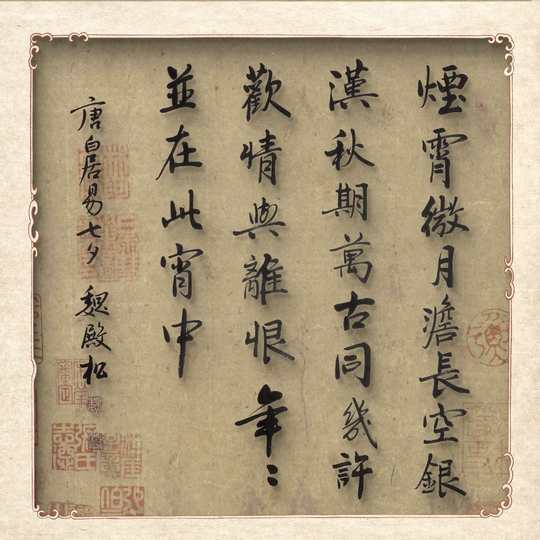 煙霄微月澹長空銀
漢秋期萬古同幾許
歡情與離恨年〻
並在此宵中
唐白居易七夕 魏殿松